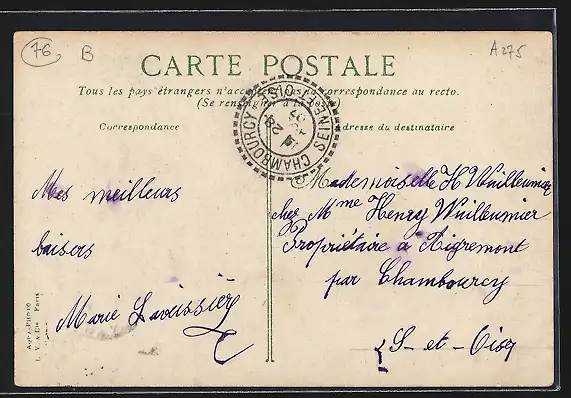 76
B
A275
CARTE POSTALE
Tous les pays étrangers n'acceptent pas la correspondance au recto.
(Se renseigner à la Poste)
Correspondance
Adresse du destinataire
CHAMBOURCY SEINE-ET-OISE
28
Mes meilleurs
baisers
Marie Laveissière
Mademoiselle H Wuilleumier
chez Mme Henry Wuilleumier
Propriétaire à Aigremont
par Chambourcy
S-et-Oise
L. V. & Cie Paris